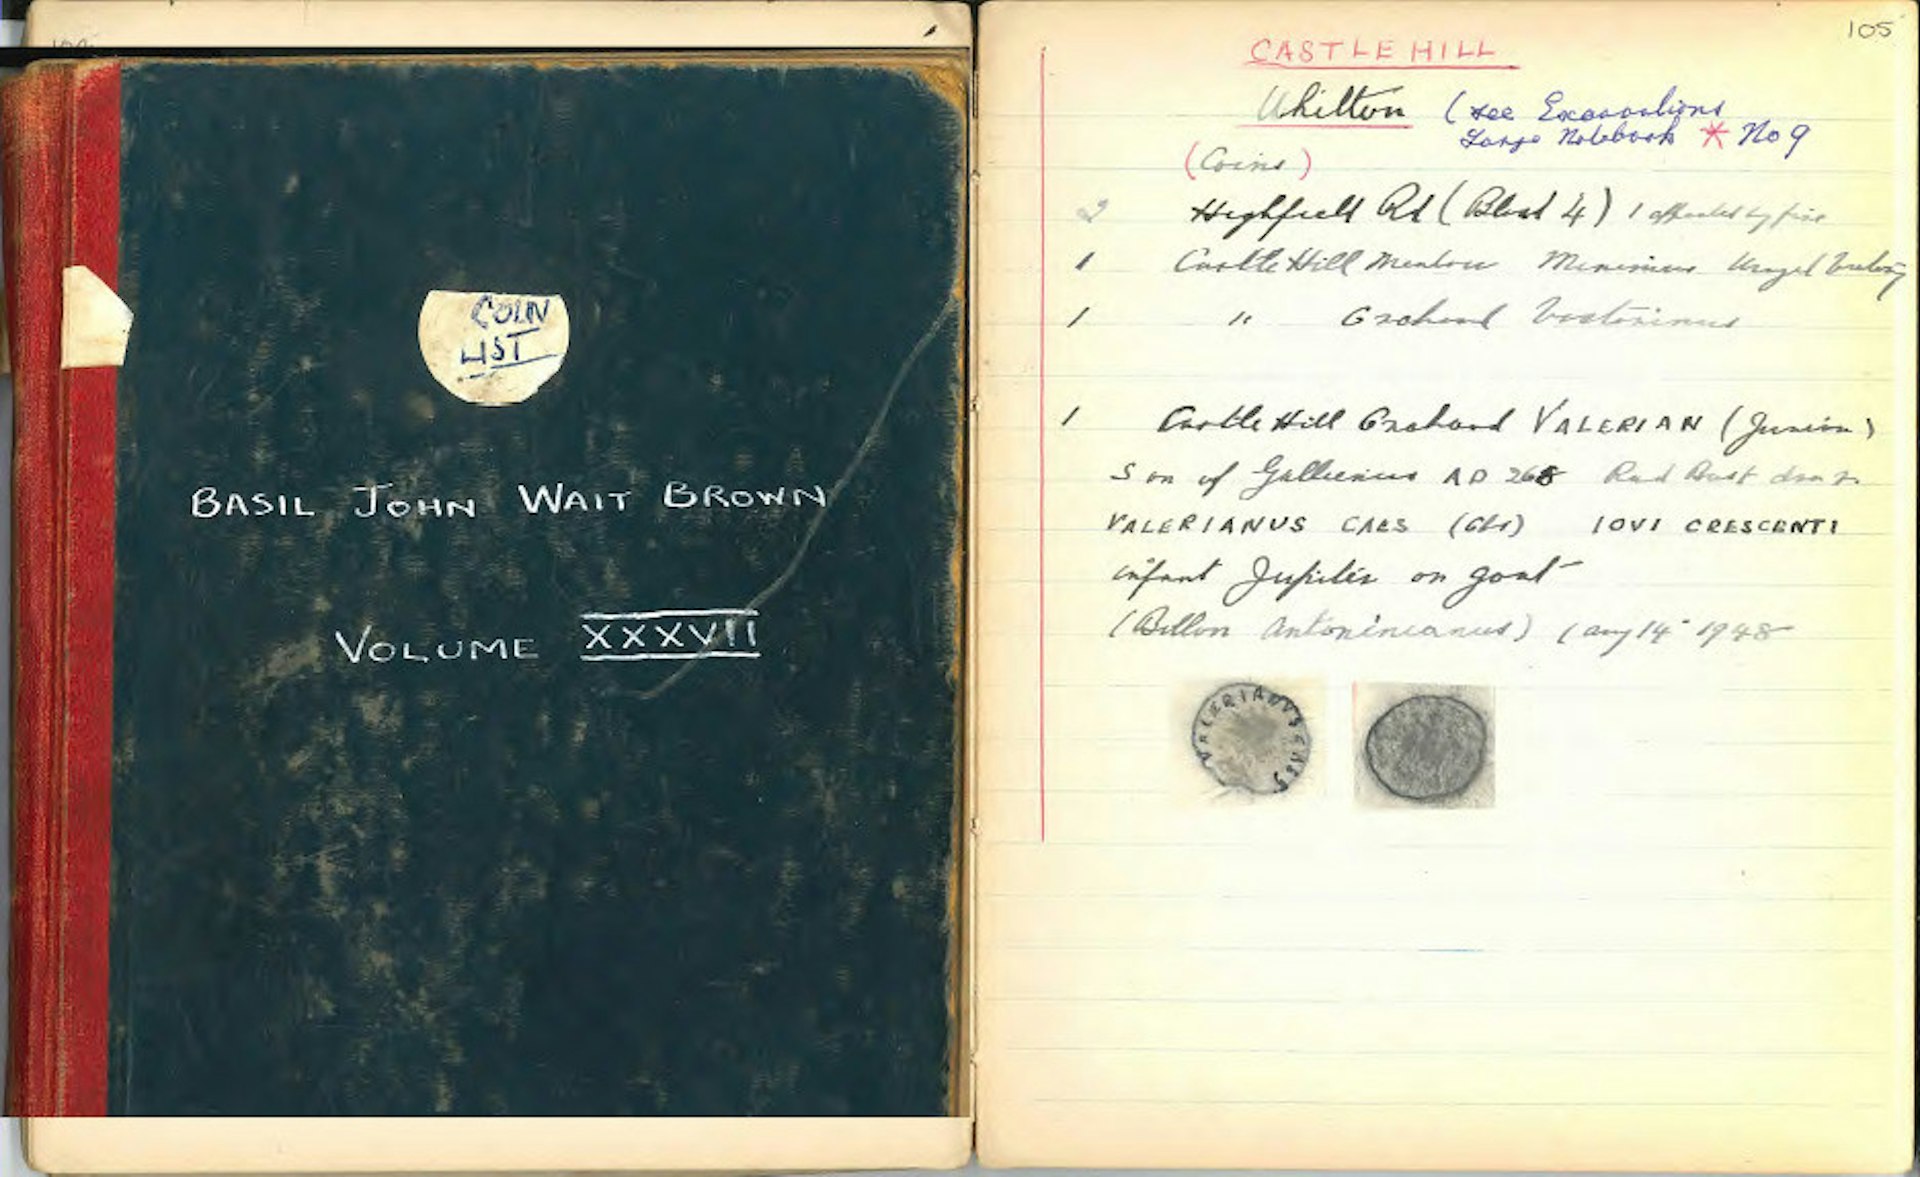 COIN
LIST
BASIL JOHN WAIT BROWN
VOLUME XXXVII
105
CASTLE HILL
Whitton (see Excavations
Large Notebook * No 9
(Coins)
2 Highfield Rd (Blond 4) 1 affected by fire
1 Castle Hill Meadow Minimus
1 " Orchard Victorinus
1 Castle Hill Orchard VALERIAN (Junior)
Son of Gallienus AD 268 Rad Bust
VALERIANUS CAES (Obv) IOVI CRESCENTI
infant Jupiter on goat
(Billon Antoninianus) (Aug 14 1948
VALERIANVS CAES